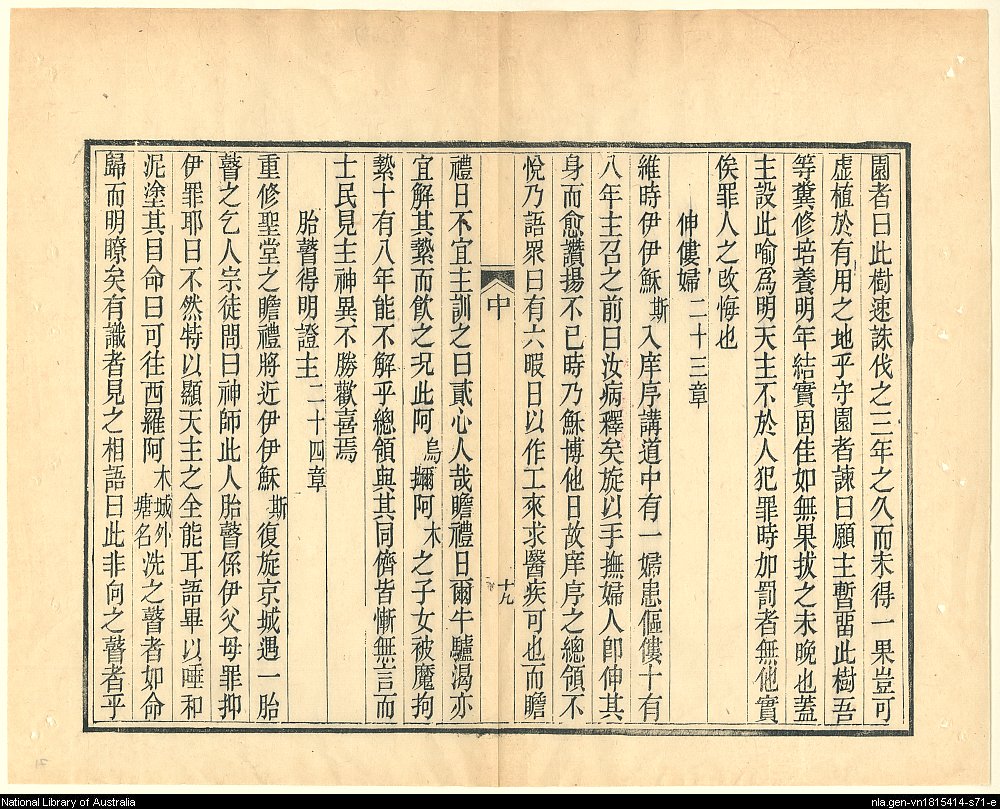 園者曰此樹速誅伐之三年之久而未得一果豈可
虛植於有用之地乎守園者諫曰願主暫畱此樹吾
等糞修培養明年結實固佳如無果拔之未晚也蓋
主設此喻爲明天主不於人犯罪時加罰者無他實
俟罪人之改悔也
伸僂婦二十三章
維時伊伊穌斯入庠序講道中有一婦患傴僂十有
八年主召之前曰汝病釋矣旋以手撫婦人卽伸其
身而愈讚揚不已時乃穌博他日故庠序之總領不
悅乃語眾曰有六暇日以作工來求醫疾可也而瞻
中
十九
禮日不宜主訓之曰貳心人哉瞻禮日爾牛驢渴亦
宜解其縶而飲之况此阿烏擲阿木之子女被魔拘
縶十有八年能不解乎總領與其同儕皆慚無言而
士民見主神異不勝歡喜焉
胎瞽得明證主二十四章
重修聖堂之瞻禮將近伊伊穌斯復旋京城遇一胎
瞽之乞人宗徒問曰神師此人胎瞽係伊父母罪抑
伊罪耶曰不然特以顯天主之全能耳語畢以唾和
泥塗其目命曰可往西羅阿木城外塘名洗之瞽者如命
歸而明瞭矣有識者見之相語曰此非向之瞽者乎
National Library of Australia
nla.gen-vn1815414-s71-e